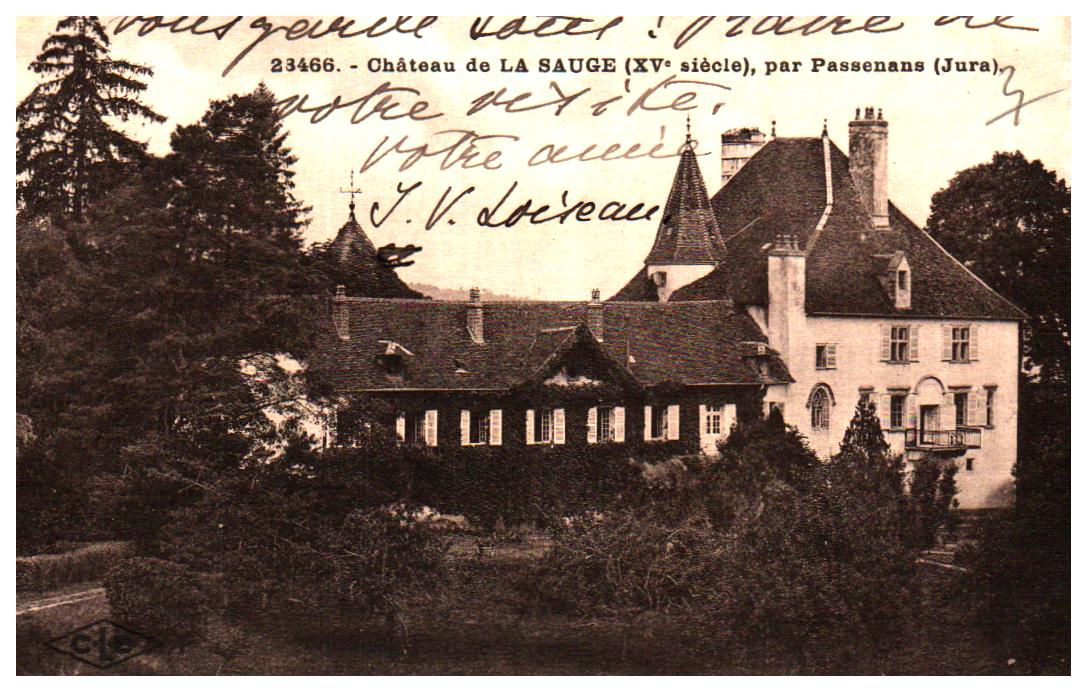 vous garde tous !
23466. - Château de LA SAUGE (XVe siècle), par Passenans (Jura).
votre visite.
votre amie
J. V. Loiseau
CLB